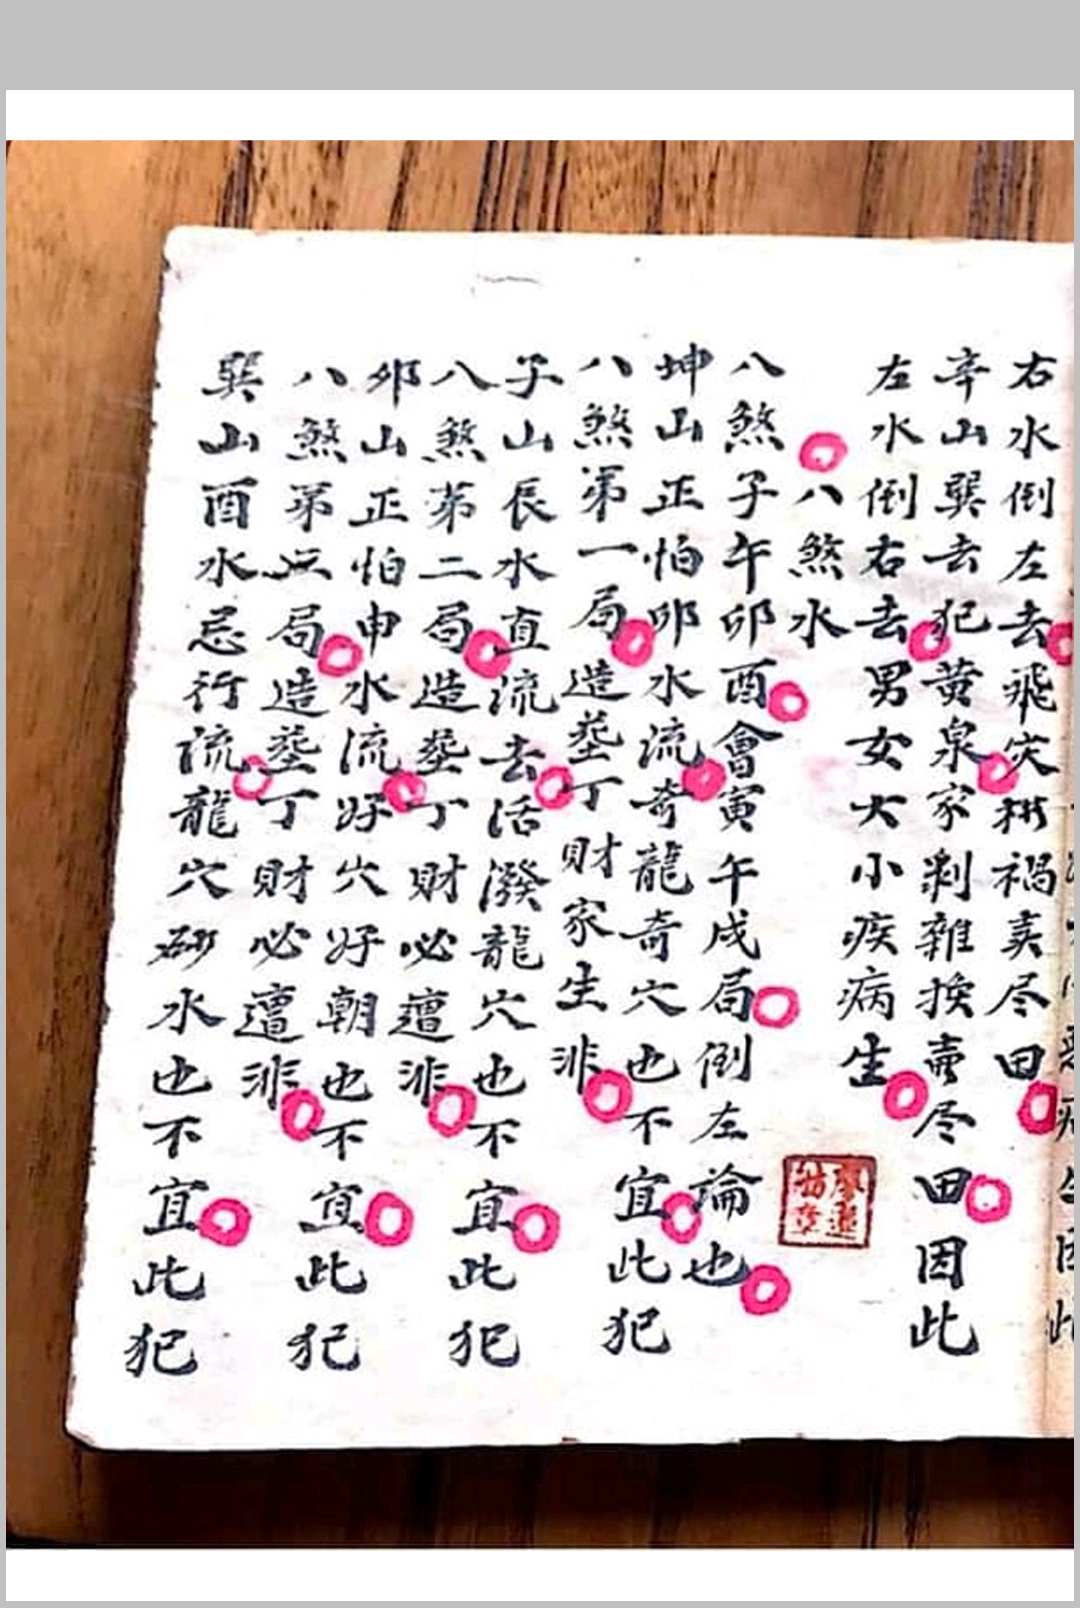 右水倒左去飛灾横禍卖尽田
辛山巽去犯黄泉家剥雜換賣尽田因此
左水倒右去男女大小疾病生
八煞水
八煞子午卯酉會寅午戌局倒左論也
坤山正怕卯水流奇龍奇穴也不宜此犯
八煞第一局造塋丁財家生非
子山辰水直流去活潑龍穴也不宜此犯
八煞第二局造塋丁財必遭非
卯山正怕申水流好穴好朝也不宜此犯
八煞第三局造塋丁財必遭非
巽山酉水忌行流龍穴砂水也不宜此犯